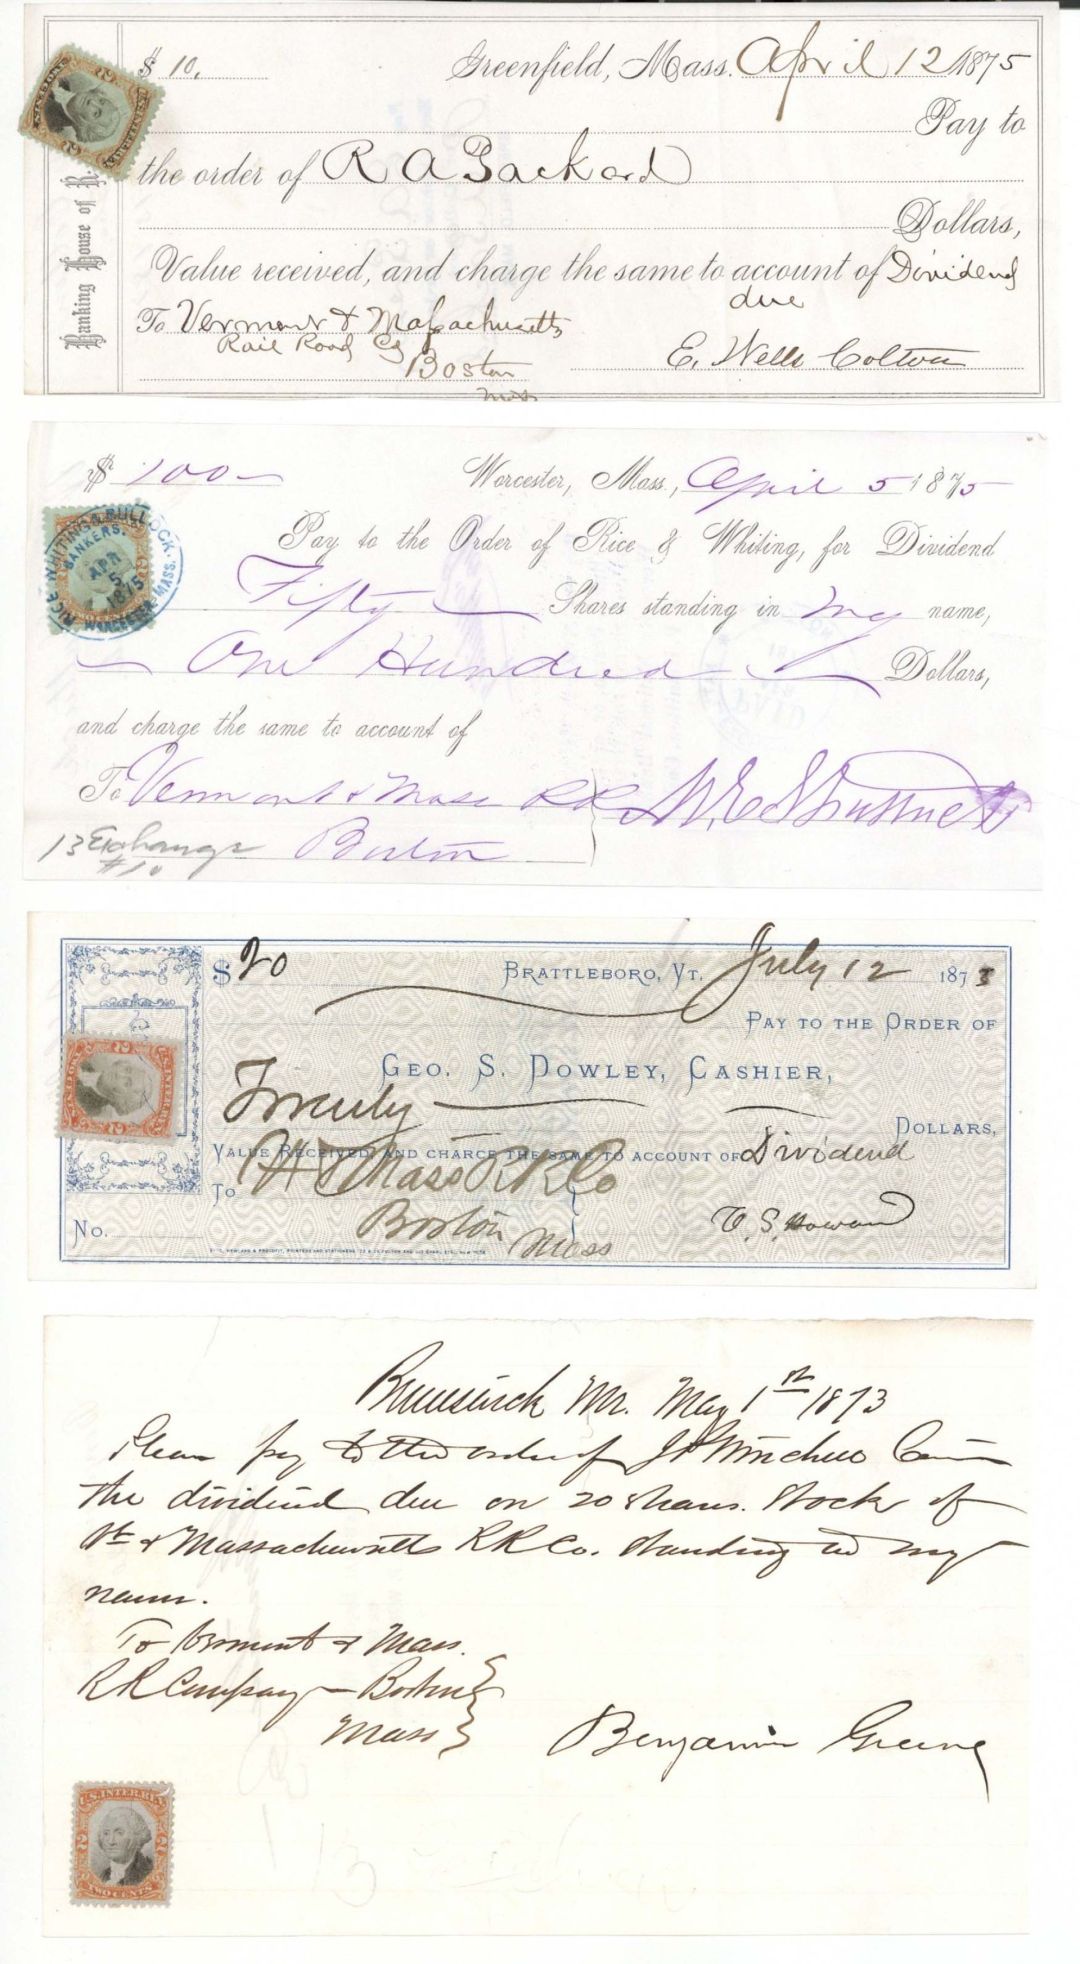 $ 10. Greenfield, Mass. April 12 1875
Pay to
the order of R A Packard
Dollars,
Value received, and charge the same to account of Dividend
due
To Vermont & Massachusetts
Rail Road Co
Boston
Mass
E. Wells Colton
Banking House of R.
$ 100 Worcester, Mass., April 5 1875
RICE, WHITING & BULLOCK.
BANKERS.
APR
5
1875
WORCESTER MASS.
Pay to the Order of Rice & Whiting, for Dividend
Fifty Shares standing in my name,
One Hundred Dollars,
and charge the same to account of
To Vermont & Mass RR
Boston
13 Exchange
#10
$ 20 BRATTLEBORO, VT. July 12 1873
PAY TO THE ORDER OF
GEO. S. DOWLEY, CASHIER,
Twenty
DOLLARS,
VALUE RECEIVED, AND CHARGE THE SAME TO ACCOUNT OF Dividend
To Vt & Mass R R Co
Boston Mass
No.
C. S. Howard
Brunswick Me. May 1st 1873
Please pay to the order of J P Winchell
the dividend due on 20 shares Stock of
Vt & Massachusetts R R Co. standing in my
name.
To Vermont & Mass.
R R Company - Boston
Mass
Benjamin Greene
U.S. INTER. REV.
2 2
TWO CENTS